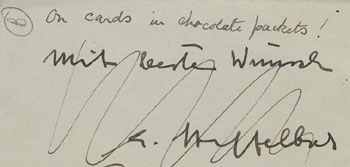 8 On cards in chocolate packets!
Mit besten Wünsch